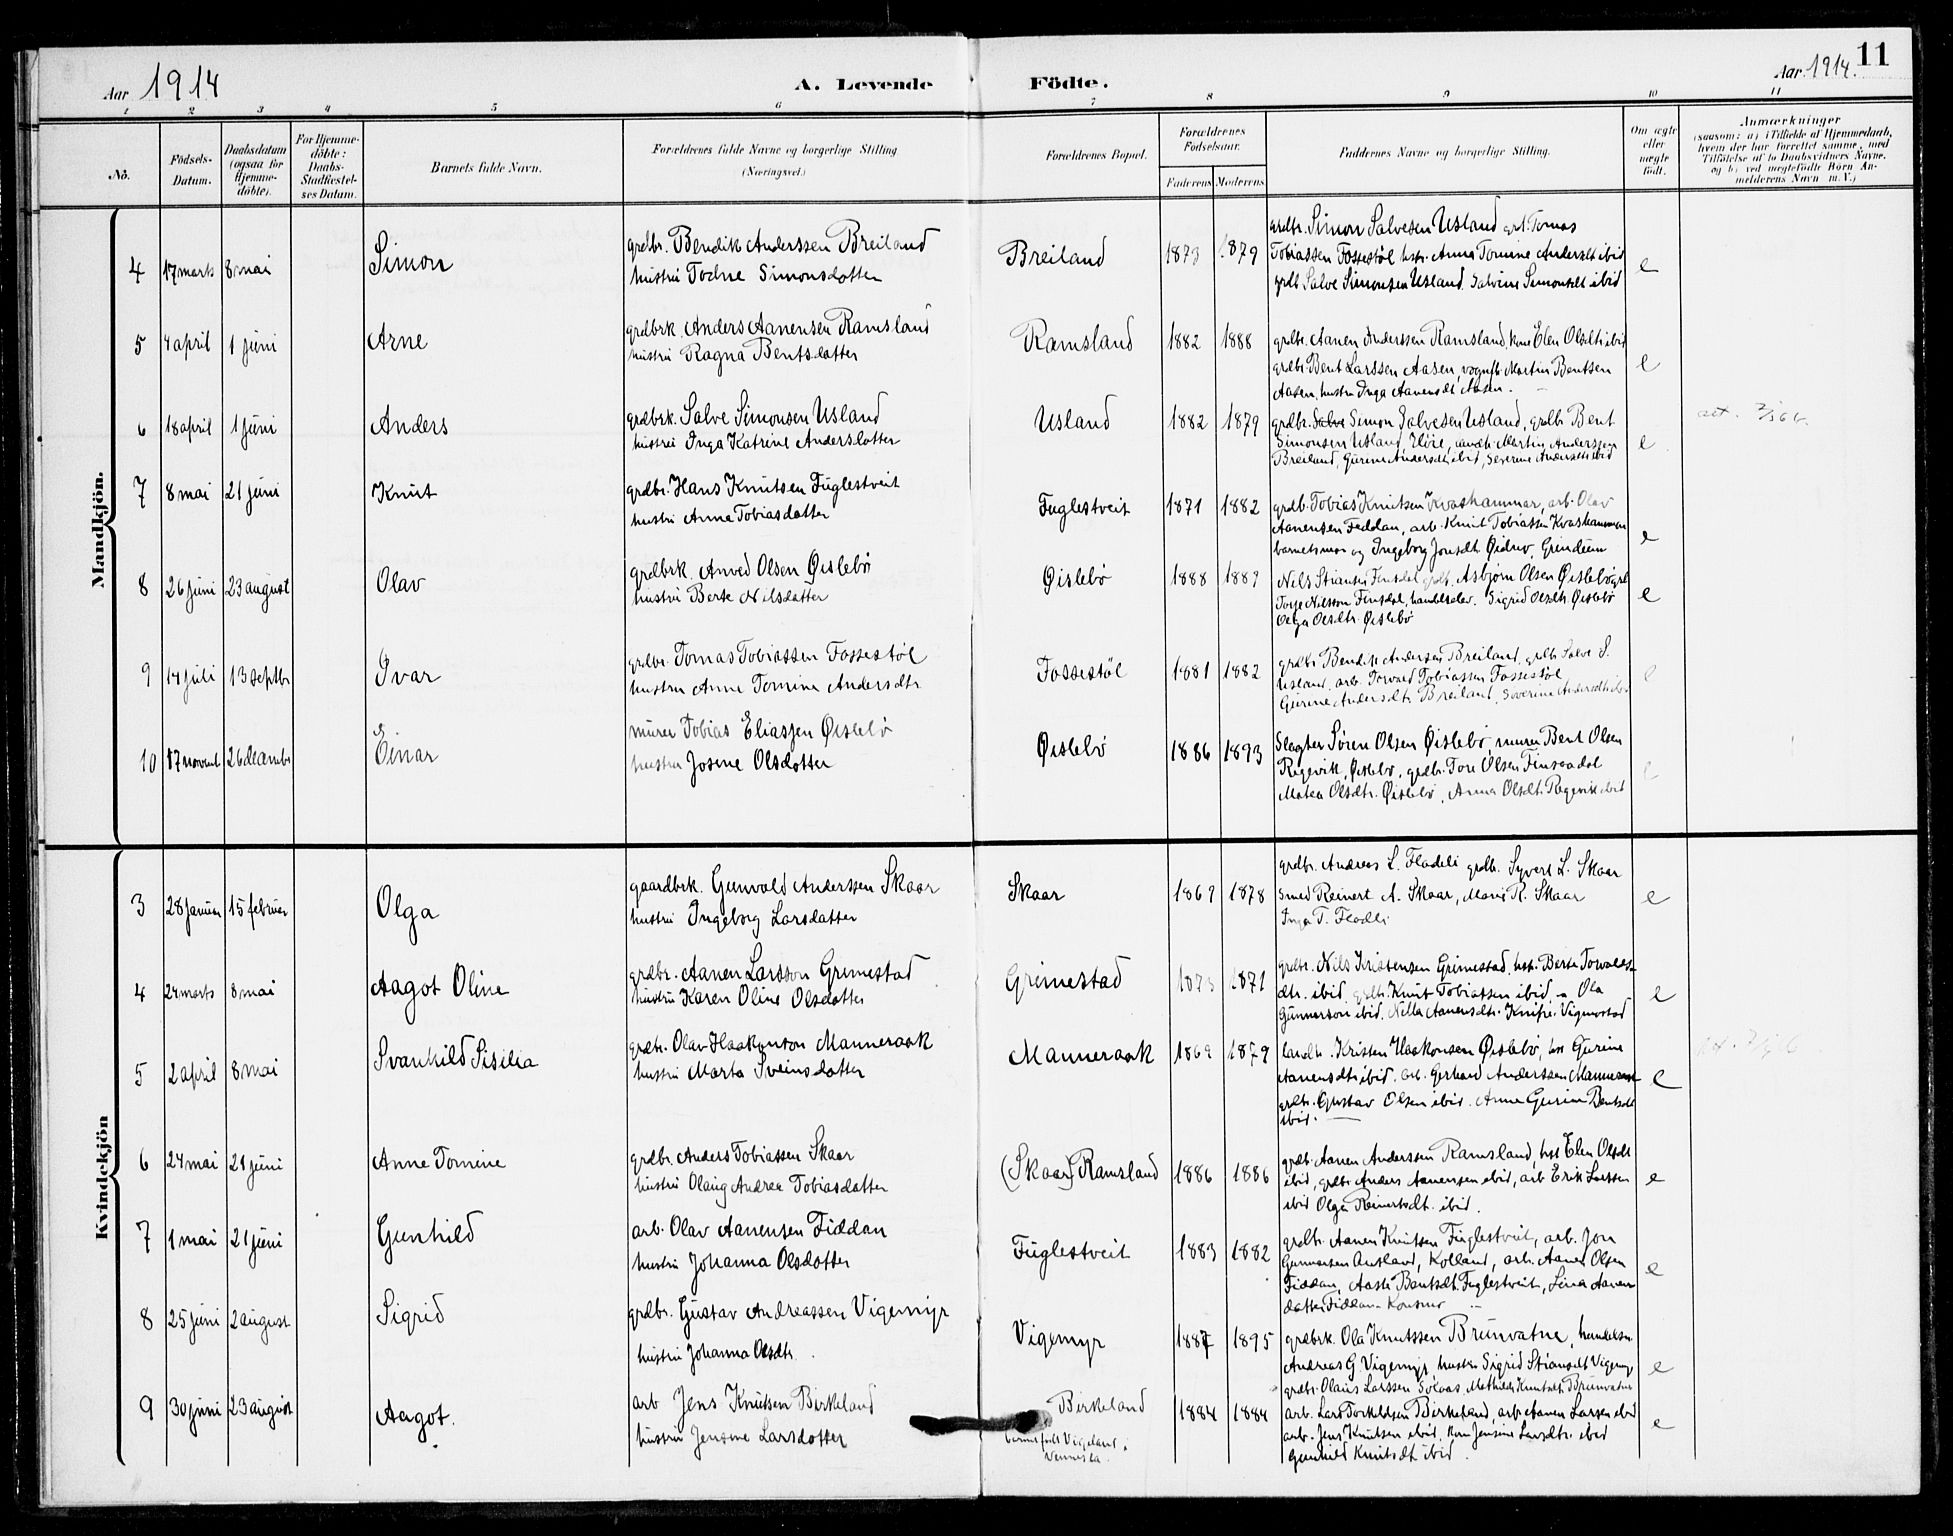 Aar 1914 A. Levende Födte. Aar 1914. 11
1 2 3 4 5 6 7 8 9 10 11
No. Födsels-Datum. Daabsdatum (ogsaa for Hjemme-döbte). For Hjemme-döbte: Daabs-Stadfæstel-ses Datum. Barnets fulde Navn. Forældrenes fulde Navne og borgerlige Stilling (Næringsvei.) Forældrenes Bopæl. Forældrenes Födselsaar. Faderens Moderens Faddernes Navne og borgerlige Stilling. Om ægte eller uægte födt. Anmærkninger (saasom: a) i Tilfælde af Hjemmedaab, hvem der har forrettet samme, med Tilföielse af to Daabsvidners Navne, og b) ved uægtefödte Börn An-melderens Navn m. V.)
Mandkjön.
4 17 marts 8 mai Simon grdbr. Bendik Anderssen Breiland
hustru Todne Simonsdatter
Breiland 1873 1879 grdbr. Simon Salvesen Usland Tomas
Tobiassen Fossestøl hstr. Anna Tomine Andersdt ibid
grdb Salve Simonsen Usland. Salvine Simonsdt ibid
e
5 4 april 1 juni Arne grdbrk. Anders Aanensen Ramsland
hustru Ragna Bentsdatter
Ramsland 1882 1888 grdbr. Aanen Anderssen Ramsland, kone Elen Olsdtr ibid
grdbr. Bent Larssen Aasen, Martin Bentsen
Aasen, hustru Inga Aanensdt Aasen.
e
6 18 april 1 juni Anders grdbrk. Salve Simonsen Usland
hustru Inga Katrine Andersdatter
Usland 1882 1879 grdbr. Salve Simon Salvesen Usland, grdbr Bent
Simonsen Usland, Høie, Martin Anderssen
Breiland, Gurine Andersdt ibid, Severine Andersdt ibid
e
7 8 mai 21 juni Knut grdbr. Hans Knutsen Fuglestveit
hustru Anna Tobiasdatter
Fuglestveit 1871 1882 grdb. Tobias Knutsen Kvashammar, arb. Olav
Aanensen Feddan, arb. Knut Tobiassen Kvashammar
barnets mor og Ingeborg Jonsdt. Grindum
e
8 26 juni 23 august Olav grdbrk. Anved Olsen Øislebø
hustru Berte Nilsdatter
Øislebø 1888 1889 Nils Finsdal grdb. Asbjørn Olsen Øislebø
Torje Nilsson Finsdal, handelselev. Sigrid Olsdtr. Øislebø
Olga Olsdtr. Øislebø
e
9 14 juli 13 septbr Ivar grdbr. Tomas Tobiassen Fossestøl
hustru Anne Tomine Andersdtr
Fossestøl 1881 1882 grdbr. Bendik Andersen Breiland, grdbr Salve S.
Usland, arb. Torvald Tobiassen Fossestøl
Gurine Andersdtr Breiland, Severine Andersdtr
e
10 17 novemb 26 decembr Einar murer Tobias Eliassen Øislebø
hustru Josine Olsdatter
Øislebø 1886 1893 Slagter Søren Olsen Øislebø, murer Bent Olsen
Regevik, Øislebø, grdbr. Tore Olsen Finsaadal
Matea Olsdtr. Øislebø, Anna Olsdt. Regevik ibid
e
Kvindekjön
3 28 januar 15 februar Olga gaardbrk. Gunvald Anderssen Skaar
hustru Ingeborg Larsdatter
Skaar 1869 1878 grdbr. Andreas L. Fladeli grdbr. Syvert L. Skaar
smed Reinert A. Skaar, Marie R. Skaar
Inga T. Fladeli
e
4 24 marts 8 mai Aagot Oline grdbr. Aanen Larsson Grimestad
hustru Karen Oline Olsdatter
Grimestad 1873 1871 grdbr. Nils Kristensen Grimestad, hstr. Berte Torvalds
dtr. ibid grdbr. Knut Tobiassen ibid, Ola
Gunnarson ibid. Nilla Aanensdtr. Vigmostad
e
5 2 april 8 mai Svanhild Sisilia grdbr. Olav Haakonson Manneraak
hustru Marta Sveinsdatter
Manneraak 1869 1879 Kristen Haakonsen Øislebø, hst Gurine
Aanensdtr ibid. arb. Gerhard Anderssen Manneraak
grdbr. Gustav Olsen ibid. Anne Gurine Bentsdt
ibid.
e
6 24 mai 21 juni Anne Tomine grdbr. Anders Tobiassen Skaar
hustru Olaug Andrea Tobiasdatter
(Skaar) Ramsland 1886 1886 grdb. Aanen Anderssen Ramsland, hst Elen Olsdt
ibid, grdbr Anders Aanensen ibid, arb Erik Larssen
ibid Olga Reinertsdt. ibid.
e
7 1 mai 21 juni Gunhild arb. Olav Aanensen Fiddan
hustru Johanna Olsdatter
Fuglestveit 1883 1882 grdbr. Aanen Knutsen Fuglestveit, arb. Jon
Gunnarsen Kolland, arb. Aanen Olsen
Fiddan, Aaste Bentsdt. Fuglestveit, Lina Aanen
datter Fiddan
e
8 25 juni 2 august Sigrid grdbr. Gustav Andreassen Vigemyr
hustru Johanna Olsdtr.
Vigemyr 1887 1895 grdbrk. Ola Knutssen Brunvatne, handelsm.
Andreas G. Vigemyr, hustru Sigrid Stiansdt Vigemyr
grdbr. Olaus Larssen Solaas, Mathilde Knutsdt. Brunvatne
e
9 30 juni 23 august Aagot. arb Jens Knutsen Birkeland
hustru Jensine Larsdatter
Birkeland
barnet født Vigeland i
Vennesla.
1884 1884 arb. Lars Torkeldsen Birkeland, arb Aanen Larsen ibid
arb. Jens Knutsen ibid. Kone Jensine Larsdtr. ibid
Gunhild Knutsdt ibid.
e